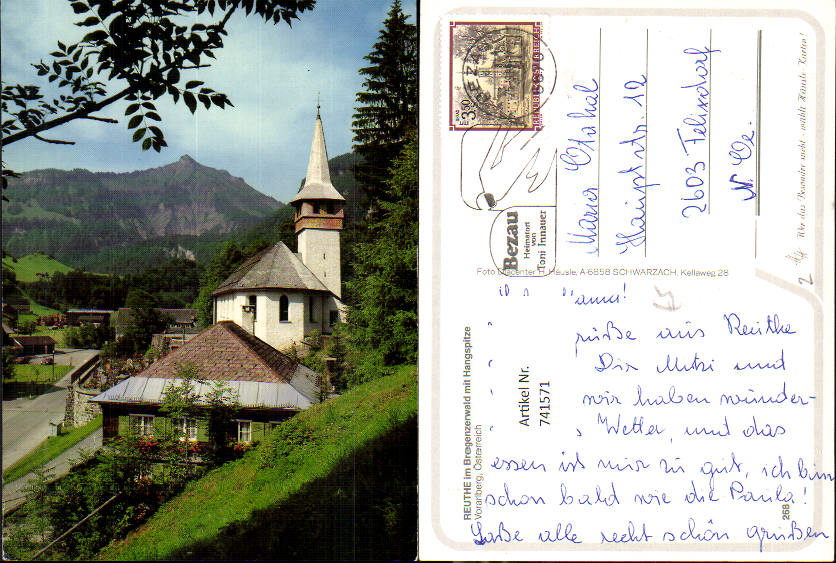 REUTHE im Bregenzerwald mit Hangspitze
Vorarlberg, Österreich
Artikel Nr.
741571
Foto Discenter H. Häusle, A-6858 SCHWARZACH, Kellaweg 28
268
Wer das Besondere sucht - wählt Häusle-Karten!
3.50
REPUBLIK ÖSTERREICH
Bezau
Heimatort
von
Toni Innauer
Maria
Hauptstr. 12
2603 Felixdorf
N. Oe.
ama!
rüße aus Reuthe
Dir Mitzi und
wir haben wunder-
Wetter, und das
essen ist mir zu gut, ich bin
schon bald wie die Paula!
Laße alle recht schön grüßen